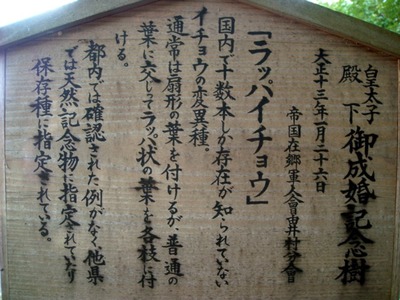 皇太子殿下御成婚記念樹
大正十三年一月二十六日
帝国在郷軍人会井村分会
「ラッパイチョウ」
国内で十数本しか存在が知られていない
イチョウの変異種。
通常は扇形の葉を付けるが、普通の
葉に交じってラッパ状の葉を各枝に付
ける。
都内では確認された例がなく、他県
では天然記念物に指定されていたり
保存種に指定されている。